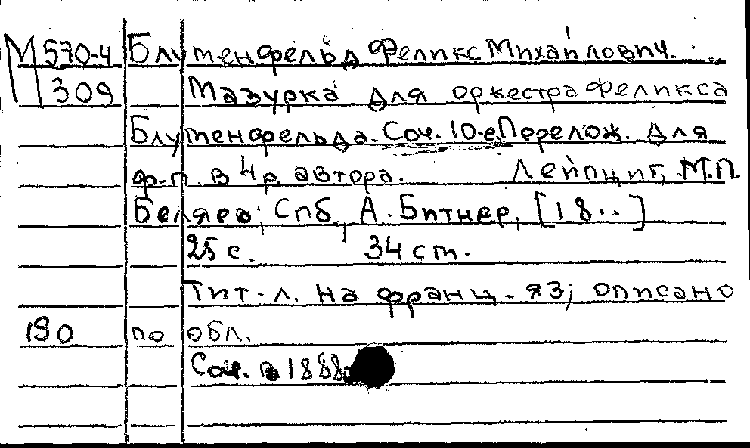 М 570-4 Блуменфельд Феликс Михайлович.
309 Мазурка для оркестра Феликса
Блуменфельда. Соч. 10-е. Перелож. для
ф.-п. в 4 р. автора. Лейпциг, М.П.
Беляев; Спб, А. Битнер, [18..]
25 с. 34 см.
Тит. л. на франц. яз; описано
190 по обл.
Соч. в 1888